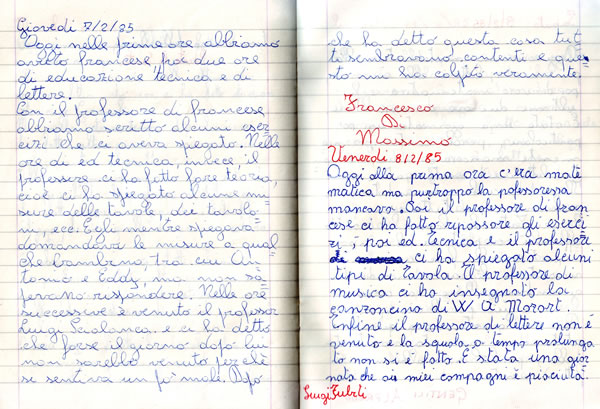 Giovedì 7/2/85
Oggi nelle prime ore abbiamo
avuto francese poi due ore
di educazione tecnica e di
lettere.
Con il professore di francese
abbiamo scritto alcuni eser=
cizi che ci aveva spiegato. Nelle
ore di ed tecnica, invece, il
professore ci ha fatto fare teoria,
cioè ci ha spiegato alcune mi=
sure delle tavole, dei tavolo=
ni, ecc. Egli mentre spiegava
domandava le misure a qual
che bambino, tra cui An=
tonio e Eddy, ma non sa=
pevano rispondere. Nelle ore
successive è venuto il professor
Luigi e ci ha detto
che forse il giorno dopo lui
non sarebbe venuto perché
si sentiva un po' male. Dopo
che ha detto questa cosa tut
ti sembravano contenti e que=
sto mi ha colpito veramente.
Francesco
Di
Massimo
Venerdì 8/2/85
Oggi alla prima ora c'era mate
matica ma purtroppo la pofessoressa
mancava. Poi il professore di fran
cese ci ha fatto ripassare gli eserci
zi, poi ed. tecnica e il professore
ci ha spiegato alcuni
tipi di tavola. Il professore di
musica ci ha insegnato la
canzoncina di W A Mozart.
Enfine il professore di lettere non è
venuto e la squola a tempo prolunga
to non si è fatto. È stata una gior
nata che ai miei compagni è piaciuta.
Luigi